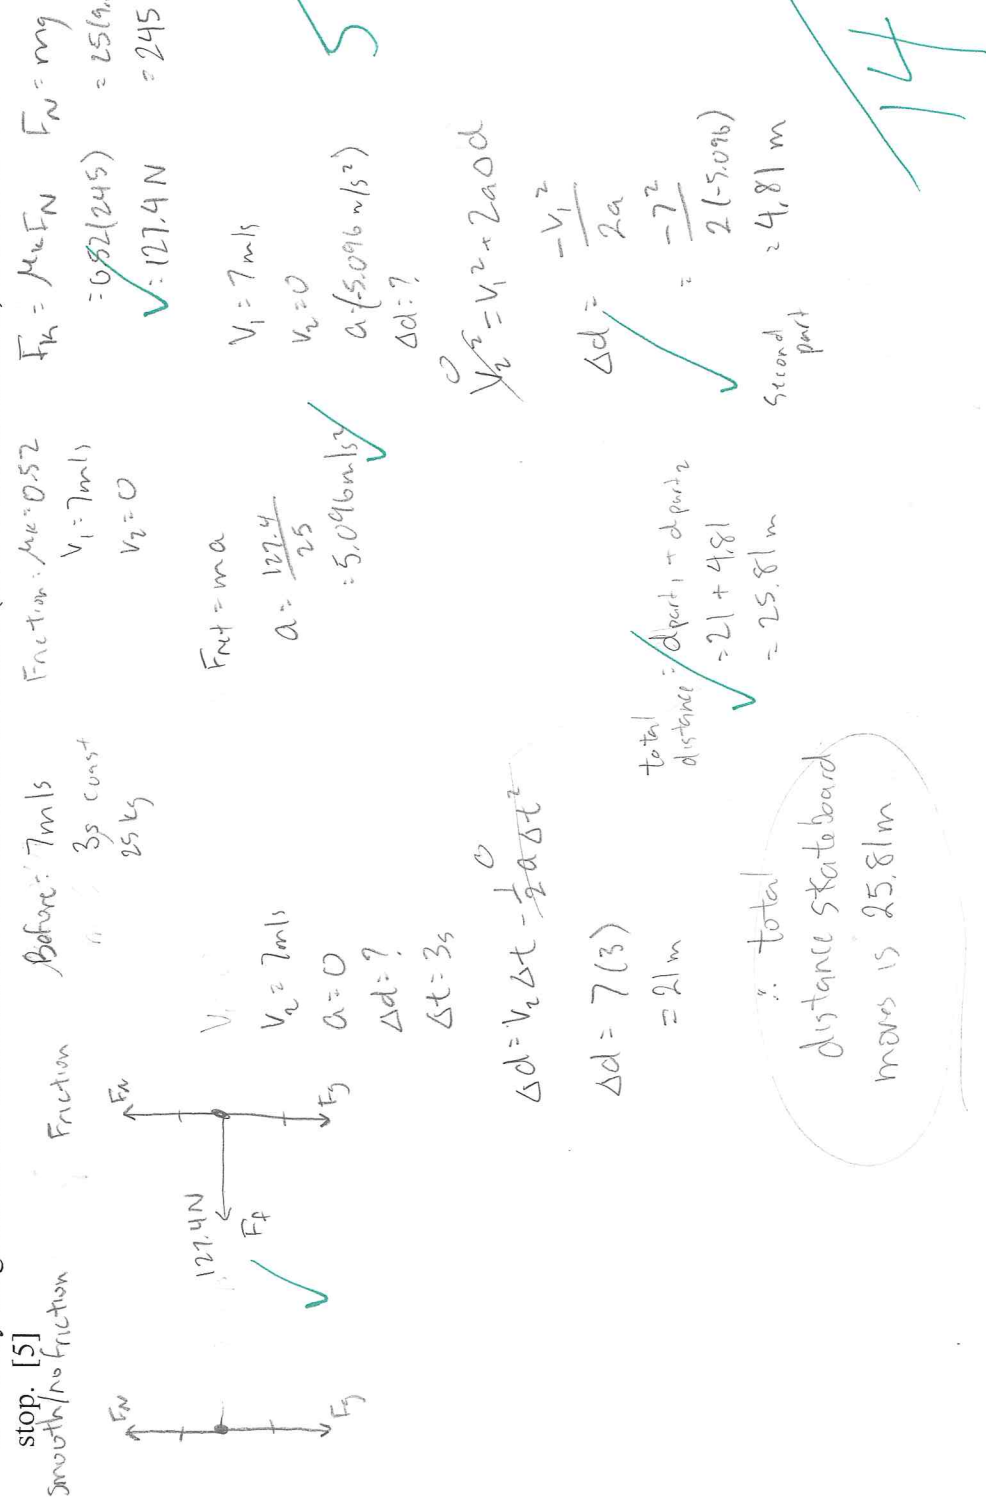 stop. [5]
smooth/no friction
Friction
FN
Fg
FN
127.4N
Ff
Fg
Before: 7m/s
3s coast
25kg
V2 = 7m/s
a = 0
Δd = ?
Δt = 3s
Δd = V2Δt - 1/2 aΔt² 0
Δd = 7(3)
= 21m
∴ total
distance skateboard
moves is 25.81m
Friction: μk=0.52
V1 = 7m/s
V2 = 0
Fnet = ma
a = 127.4/25
= 5.096m/s²
total
distance = dpart1 + dpart2
= 21 + 4.81
= 25.81m
Fk = μkFN
= 0.52(245)
= 127.4N
FN = mg
= 25(9.
= 245
V1 = 7m/s
V2 = 0
a(-5.096m/s²)
Δd = ?
0
V2² = V1² + 2aΔd
Δd = -V1²/2a
= -7²/2(-5.096)
= 4.81m
second
part
5
/14